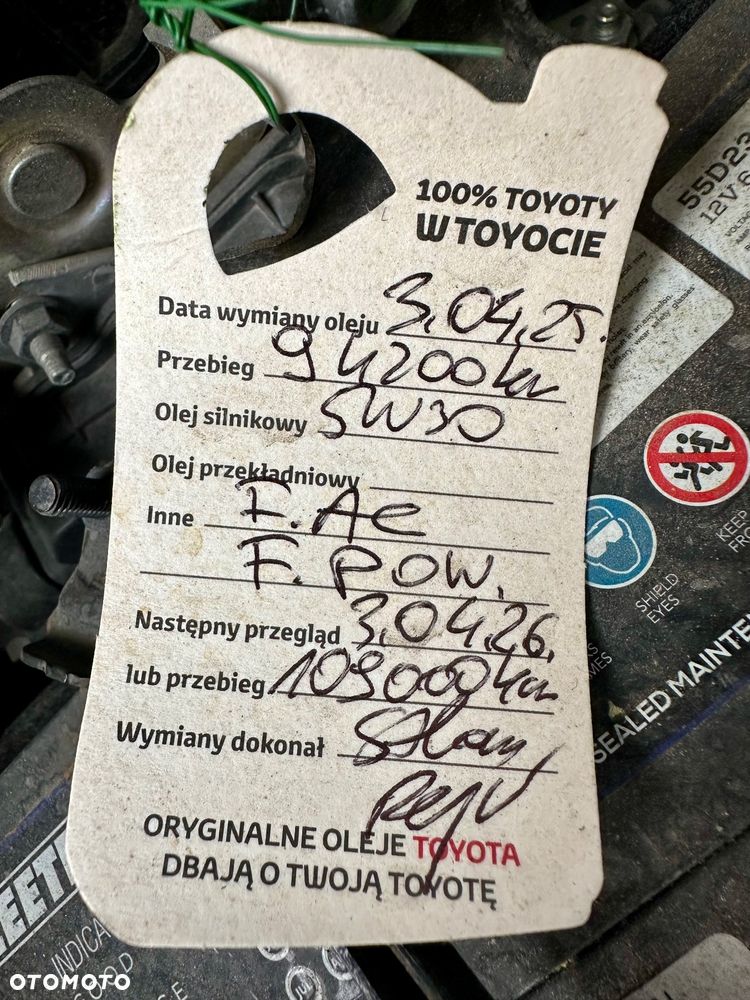 100% TOYOTY
W TOYOCIE
Data wymiany oleju 3.04.25.
Przebieg 94200km
Olej silnikowy 5W30
Olej przekładniowy
Inne F. AC
F. POW.
Następny przegląd 3.04.26.
lub przebieg 109000km
Wymiany dokonał
ORYGINALNE OLEJE TOYOTA
DBAJĄ O TWOJĄ TOYOTĘ
55D23
12V 6
SHIELD
EYES
KEEP
SEALED MAINTE
INDICA
OTOMOTO